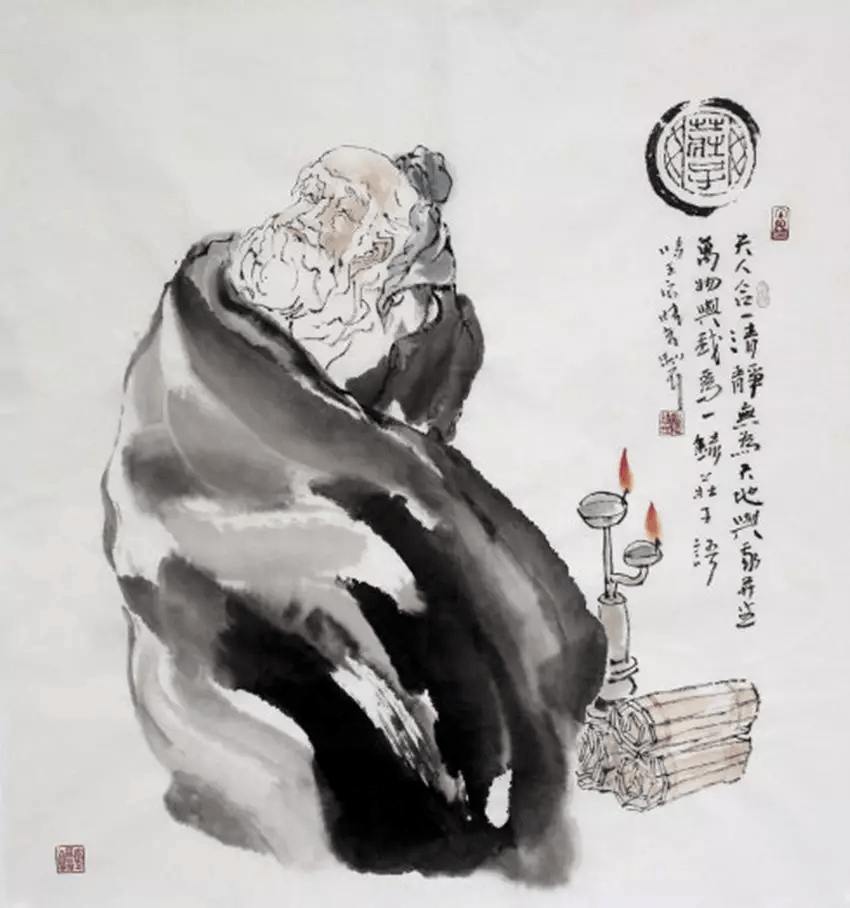 莊子
天人合一清靜無為天地與我并生
萬物與我為一錄莊子語